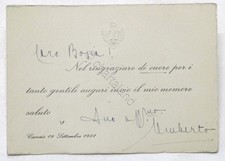 Caro Bozza!
Nel ringraziare di cuore per i
tanti gentili auguri invio il mio memore
saluto
Suo aff.mo
Umberto
Cascais 19 Settembre 1961